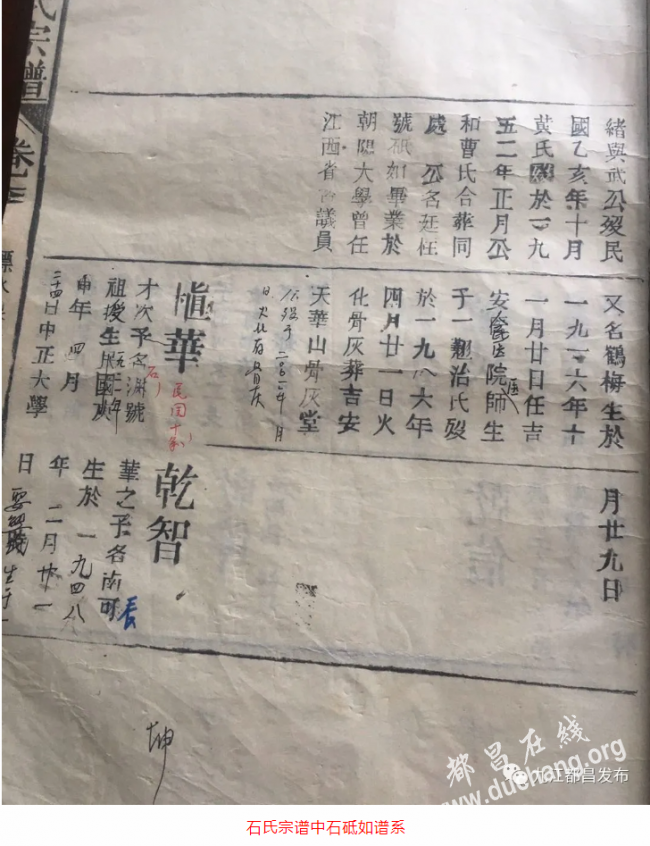 氏宗譜
卷七
緒與武公歿民
國乙亥年十月
黄氏歿於一九
五二年正月公
和曹氏合葬同
處 公名廷柱
號砥如畢業於
朝陽大學曾任
江西省 議員
又名鶴梅生於
一九一六年十
一月廿日任吉
安 医院医師生
子一 治氏歿
於一九八六年
四月廿一日火
化骨灰葬吉安
天華山骨灰堂
日火化存骨灰
慎華
才次子名 號
祖授生民國
申年 四月
二十四日中正大學
民国十
月廿九日
乾智
華之子名南可
長
生於 一九四八
年 二月廿一
日
坤
都昌在线
www.duchang.org
九江都昌发布
石氏宗谱中石砥如谱系